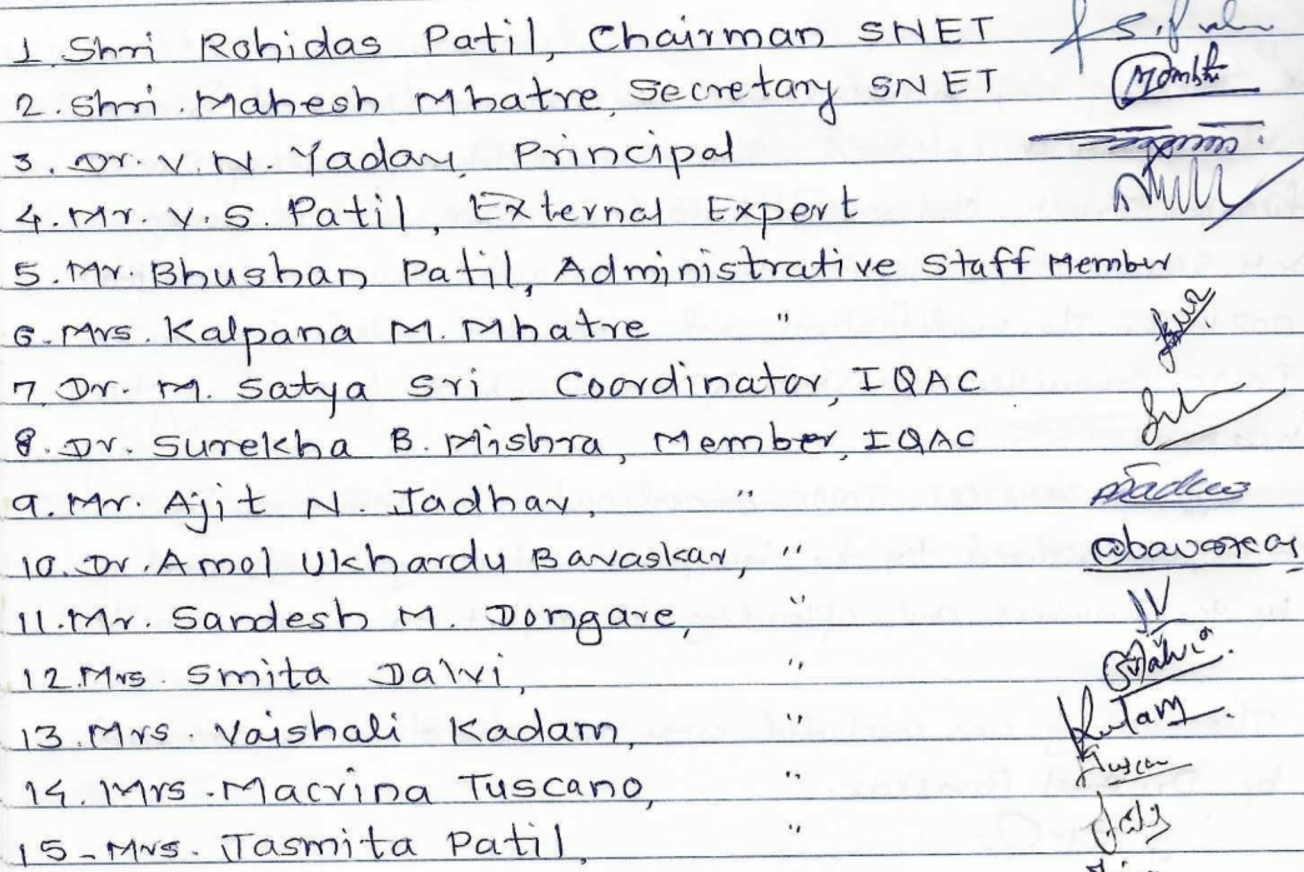 1. Shri Rohidas Patil, Chairman SNET
2. Shri. Mahesh Mhatre, Secretary SNET
3. Dr. V. N. Yadav, Principal
4. Mr. V. S. Patil, External Expert
5. Mr. Bhushan Patil, Administrative Staff Member
6. Mrs. Kalpana M. Mhatre "
7. Dr. M. Satya Sri - Coordinator, IQAC
8. Dr. Surekha B. Mishra, Member, IQAC
9. Mr. Ajit N. Jadhav, "
10. Dr. Amol Ukhardu Bavaskar, "
11. Mr. Sandesh M. Dongare, "
12. Mrs. Smita Dalvi, "
13. Mrs. Vaishali Kadam, "
14. Mrs. Macrina Tuscano, "
15. Mrs. Jasmita Patil, "